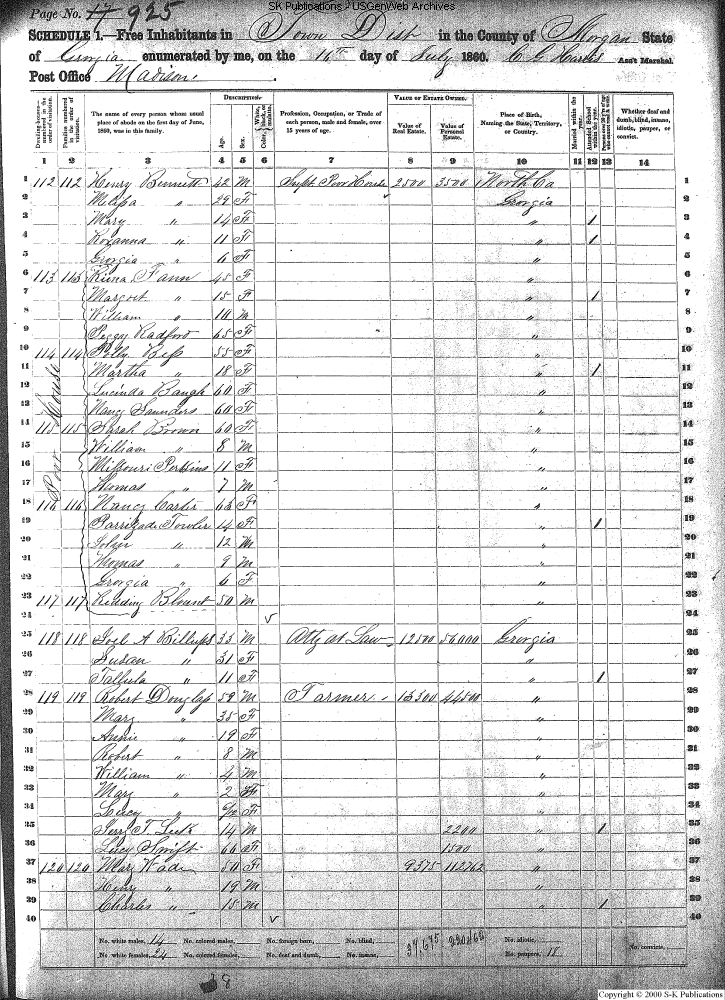 SK Publications / USGenWeb Archives
Page No. 17 925
SCHEDULE 1.—Free Inhabitants in Town Dist in the County of Morgan State
of Georgia enumerated by me, on the 16th day of July 1860. C G Harris Ass't Marshal.
Post Office Madison.
Dwelling-houses—numbered in the order of visitation.
Families numbered in the order of visitation.
The name of every person whose usual place of abode on the first day of June, 1860, was in this family.
DESCRIPTION.
Age.
Sex.
Color, White, black, or mulatto.
Profession, Occupation, or Trade of each person, male and female, over 15 years of age.
VALUE OF ESTATE OWNED.
Value of Real Estate.
Value of Personal Estate.
Place of Birth, Naming the State, Territory, or Country.
Married within the year.
Attended School within the year.
Whether deaf and dumb, blind, insane, idiotic, pauper, or convict.
1 2 3 4 5 6 7 8 9 10 11 12 13 14
1 112 112 Henry Bennett 42 M Supt Poor House 2500 3500 North Ca 1
2 Melissa " 29 F Georgia 2
3 Mary " 14 F " 1 3
4 Roxanna " 11 F " 1 4
5 Georgia " 6 F " 5
6 113 113 Fann 45 F " 6
7 Margret " 15 F " 1 7
8 William " 10 M " 8
9 Peggy Radford 65 F " 9
10 114 114 Polly Bess 55 F " 10
11 Martha " 18 F " 1 11
12 Lucinda Baugh 60 F " 12
13 Nancy Saunders 60 F " 13
14 115 115 Sarah Brown 60 F " 14
15 William " 8 M " 15
16 Missouri Perkins 11 F " 16
17 Thomas " 7 M " 17
18 116 116 Nancy Carter F " 18
19 Fowler 14 F " 1 19
20 " 12 M " 20
21 Thomas " 9 M " 21
22 Georgia " 6 F " 22
23 117 117 Reading Blount 50 M " 23
24 24
25 118 118 Joel A Billups 33 M Atty at Law 12500 56,000 Georgia 25
26 Susan " 31 F " 26
27 Tallula " 11 F " 1 27
28 119 119 Robert Douglass 59 M Farmer 13300 44500 " 28
29 Mary " 35 F " 29
30 Annie " 19 F " 30
31 Robert " 8 M " 31
32 William " 4 M " 32
33 Mary " 2 F " 33
34 Lucy " 6/12 F " 34
35 14 M 2200 " 1 35
36 Lucy Swift 66 F 1500 " 36
37 120 120 Mary Wade 50 F 9375 112762 " 37
38 Henry " 19 M " 38
39 Charles " 15 M " 1 39
40 40
Poor House
No. white males, 14 No. colored males, No. foreign born, No. blind, 37,675 220462 No. idiotic,
No. white females, 24 No. colored females, No. deaf and dumb, No. insane, No. paupers, 18 No. convicts,
38
Copyright © 2000 S-K Publications